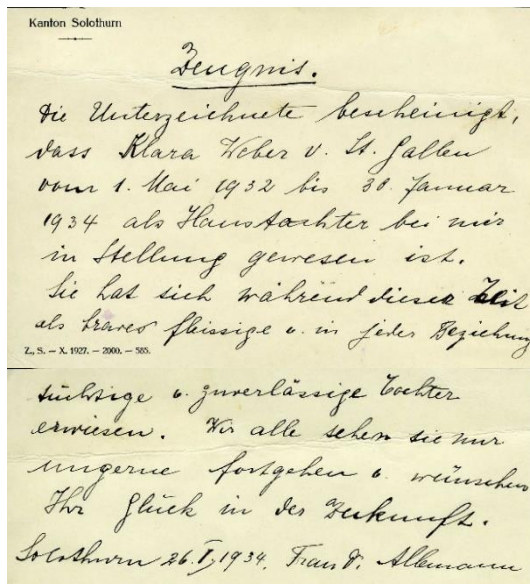 Kanton Solothurn
Zeugnis.
Die Unterzeichnete bescheinigt,
dass Klara Weber v. St. Gallen
vom 1. Mai 1932 bis 30. Januar
1934 als Haustochter bei mir
in Stellung gewesen ist.
Sie hat sich während dieser Zeit
als braves fleissige u. in jeder Beziehung
Z., S. – X. 1927. – 2000. – 585.
tüchtige u. zuverlässige Tochter
erwiesen. Wir alle sehen sie nur
ungerne fortgehen u. wünschen
Ihr Glück in der Zukunft.
Solothurn 26. I. 1934. Frau Allemann